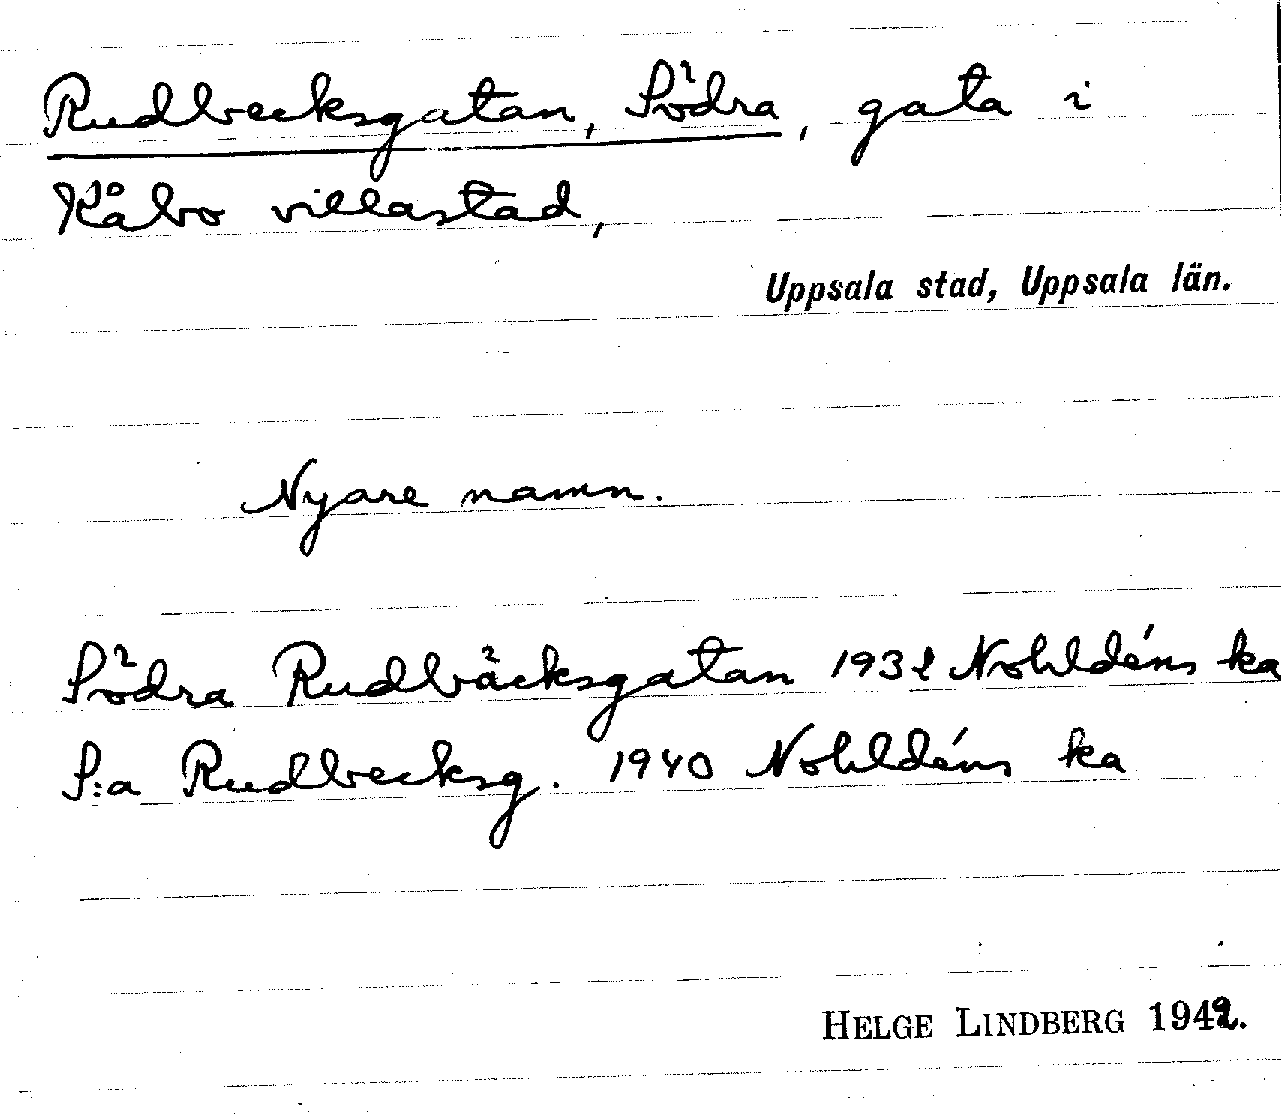 Rudbecksgatan, Södra, gata i
Kåbo villastad,
Uppsala stad, Uppsala län.
Nyare namn.
Södra Rudbäcksgatan Nohldéns ka
S:a Rudbecksg. 1940 Nohldéns ka
HELGE LINDBERG